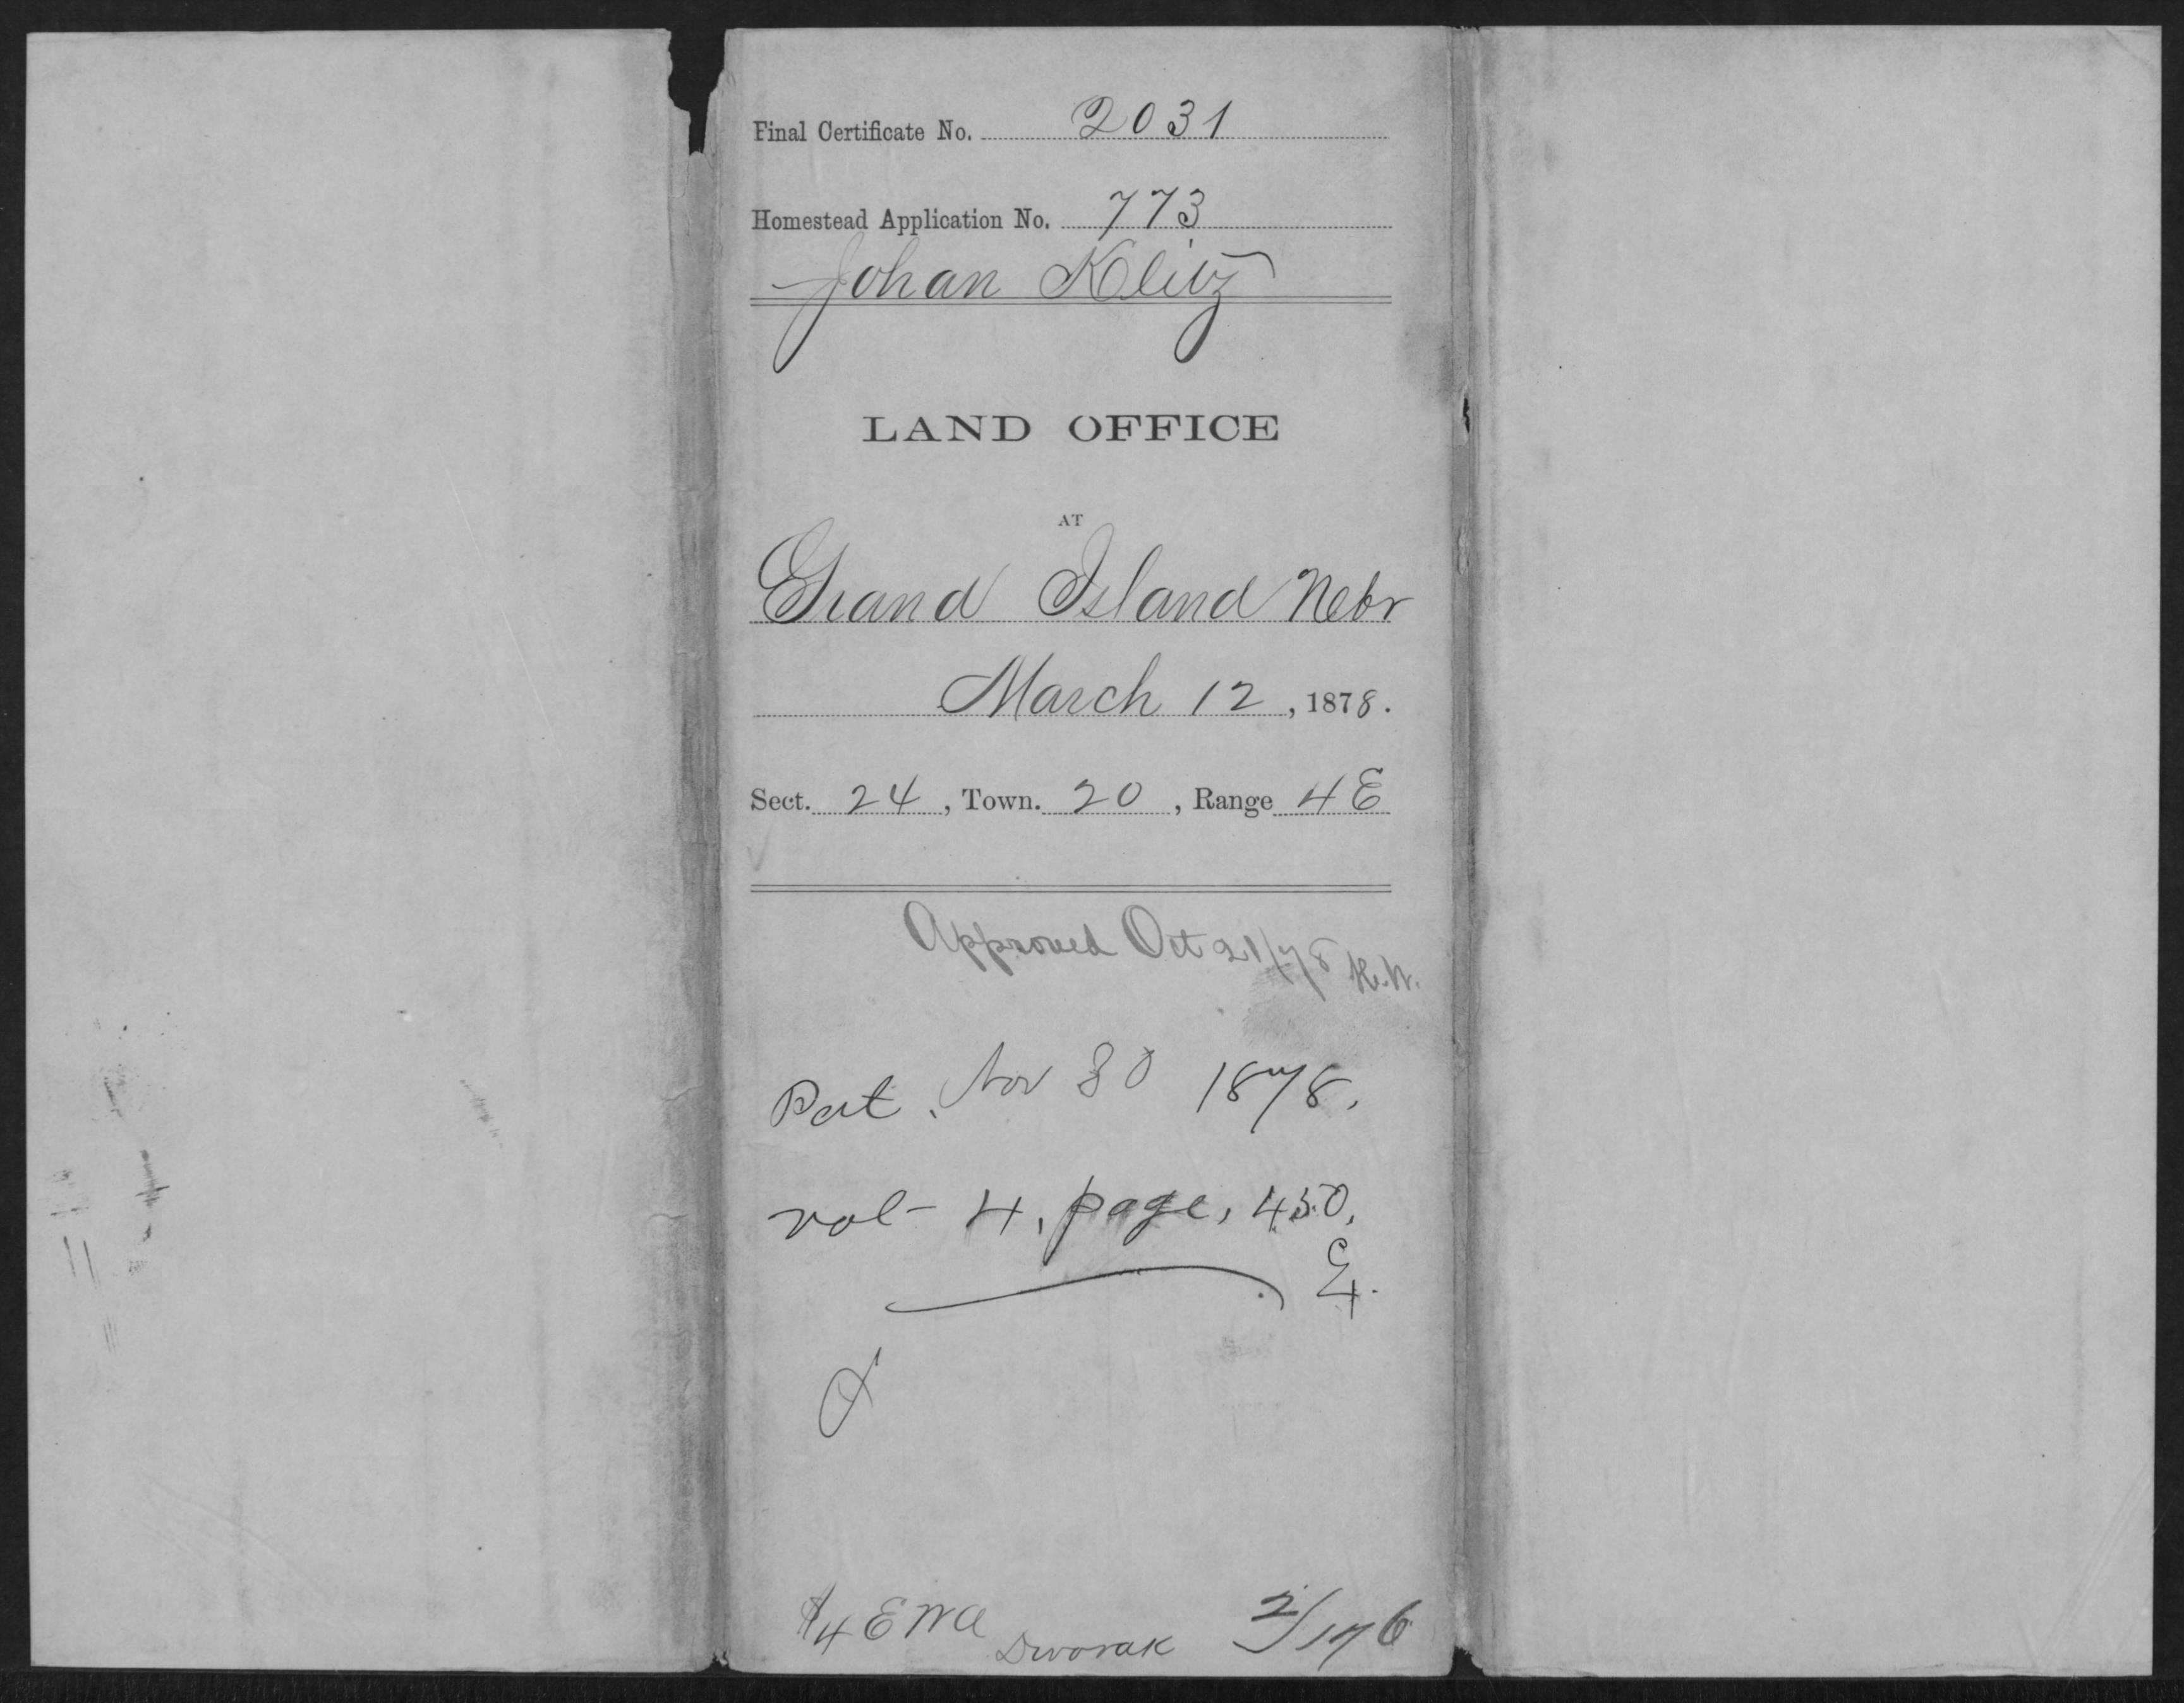 Final Certificate No. 2031
Homestead Application No. 773
Johan Klitz
LAND OFFICE
AT
Grand Island Nebr
March 12, 1878.
Sect. 24, Town. 20, Range 4E
Approved Oct 21/78
Pat. Nov 30 1878.
vol- 4, page, 450,
Dworak 2/176